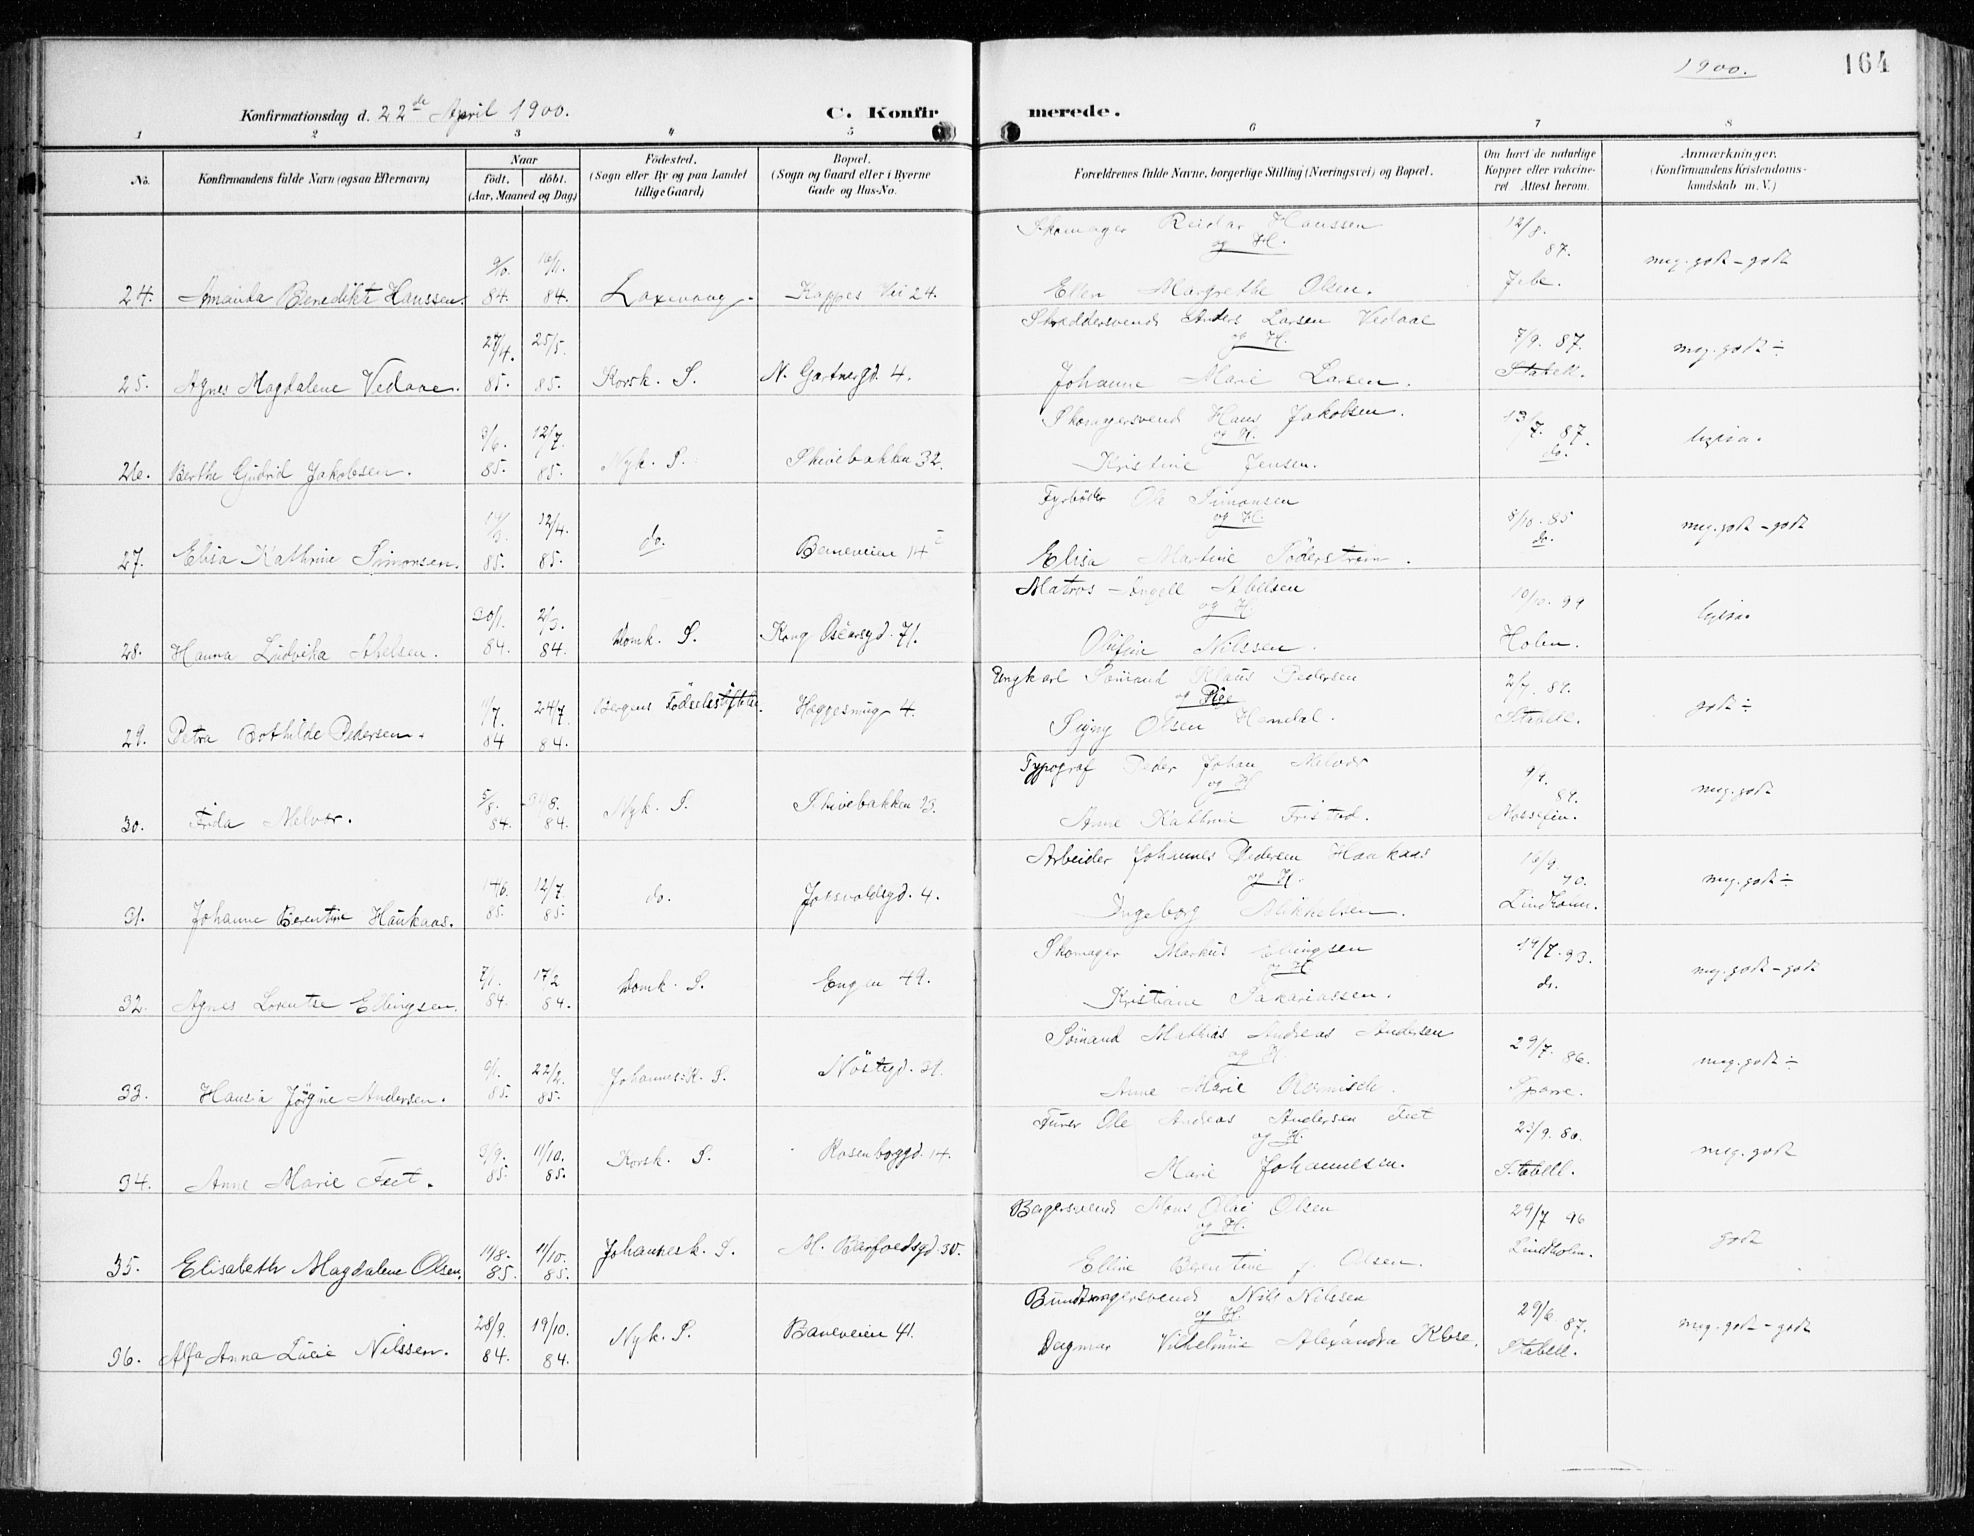 1900. 164
Konfirmationsdag d. 22de April 1900. C. Konfirmerede.
1 2 3 4 5 6 7 8
No. Konfirmandens fulde Navn (ogsaa Efternavn) Naar født. døbt. (Aar, Maaned og Dag) Fødested. (Sogn eller By og paa Landet tillige Gaard) Bopæl. (Sogn og Gaard eller i Byerne Gade og Hus-No. Forældrenes fulde Navne, borgerlige Stilling (Næringsvei) og Bopæl. Om havt de naturlige Kopper eller vakcineret. Attest herom. Anmærkninger. (Konfirmandens Kristendomskundskab m. V.)
Skomager Reidar Hanssen 12/8. 87.
og H. meg. godt - godt
24. Amanda Benedikte Hanssen. 9/10. 84. 16/11. 84. Laxevaag. Kappes Vei 24. Ellen Margrethe Olsen. Jebe.
Skræddersvend Anders Larsen Vedaae 7/9. 87.
og H. meg. godt ÷
25. Agnes Magdalene Vedaae. 27/4. 85. 25/5. 85. Korsk. S. N. Gartnergd. 4. Johanne Marie Larsen. Stabell.
Skomagersvend Hans Jakobsen. 13/7. 87.
og H. do. ligesaa.
26. Berthe Gudrid Jakobsen. 3/6. 85. 12/7. 85. Nyk. S. Skivebakken 32. Kristine Jensen.
Fyrbøder Ole Simonsen 8/10. 85
og H. do. meg. godt - godt
27. Elisa Kathrine Simonsen. 14/3. 85. 12/4. 85. do. Baneveien 14 Elisa Martine Söderstrøm.
Matros Angell Abelsen 10/10. 99
og H. ligesaa.
28. Hanna Ludvika Abelsen. 30/1. 84. 2/3. 84. Domk. S. Kong Oscarsgd. 71. Olufine Nilssen. Holm.
Ungkarl Sømand Klaus Pedersen 2/7. 89.
og Pige godt ÷
29. Petra Bothilde Pedersen. 11/7. 84 24/7. 84. Bergens Fødselsstiftelse. Heggesmug 4. Signy Olsen Hamdal. Stabell.
Typograf Peder Johan Melvær 9/9. 89.
og H meg. godt
30. Frida Melvær. 5/8. 84. 31/8. 84. Nyk. S. Skivebakken 23. Anne Kathrine Fristad. Mossefin.
Arbeider Johannes Pedersen Haukaas 16/9. 90.
og H. meg. godt ÷
31. Johanne Berentine Haukaas. 14/6. 85. 12/7. 85. do. Jonsvoldsgd. 4. Ingeborg Mikkelsen. Lindholm.
Skomager Markus Ellingsen 19/7. 93.
og H do. meg. godt - godt
32. Agnes Lorentse Ellingsen. 7/1. 84. 17/2 84. Domk. S. Engen 49. Kristiane Sakariassen.
Sømand Mathias Andreas Andersen 29/7. 86.
og H. meg. godt ÷
33. Hansia Jørgine Andersen. 9/1. 85. 22/2. 85. Johannesk. S. Nöstegd. 31. Anne Marie Olsen. Sparre.
Furer Ole Andreas Andersen Feet 23/9. 86.
og H. meg. godt
34. Anne Marie Feet. 3/9. 85. 11/10. 85. Korsk. S. Rosenborggd. 14. Marie Johannesen. Stabell.
Bagersvend Mons Olai Olsen 29/7 96
og H. godt
35. Elisabeth Magdalene Olsen. 11/8. 85. 11/10. 85. Johannesk. S. M. Barfoedsgd 30. Elline Berentine f. Olsen. Lindholm.
Bundtmagersvend Nils Nilssen 29/6. 87.
og H. meg. godt - godt
36. Alfa Anna Lucie Nilssen. 28/9. 84. 19/10. 84. Nyk. S. Baneveien 41. Dagmar Vilhelmine Alexandra Klose. Stabell.